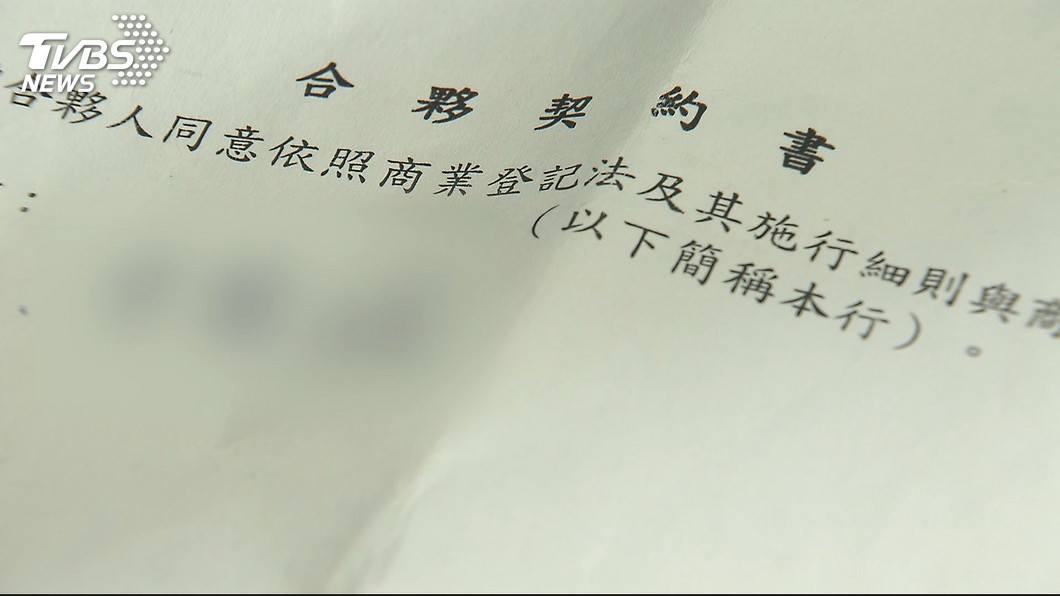 TVBS
NEWS
合夥契約書
合夥人同意依照商業登記法及其施行細則與商
：
（以下簡稱本行）。